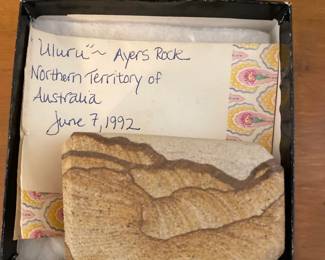 "Uluru" ~ Ayers Rock
Northern Territory of
Australia
June 7, 1992